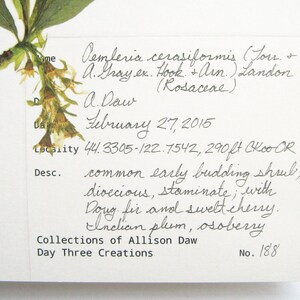 Name Oemleria cerasiformis (Torr. +
A. Gray ex. Hook. + Arn.) Landon
(Rosaceae)
D A. Daw
Date February 27, 2015
Locality 44.3305-122.7542, 290ft
Desc. common early budding shrub,
dioecious, staminate; with
Doug fir and sweet cherry.
Indian plum, osoberry
Collections of Allison Daw
Day Three Creations No. 188